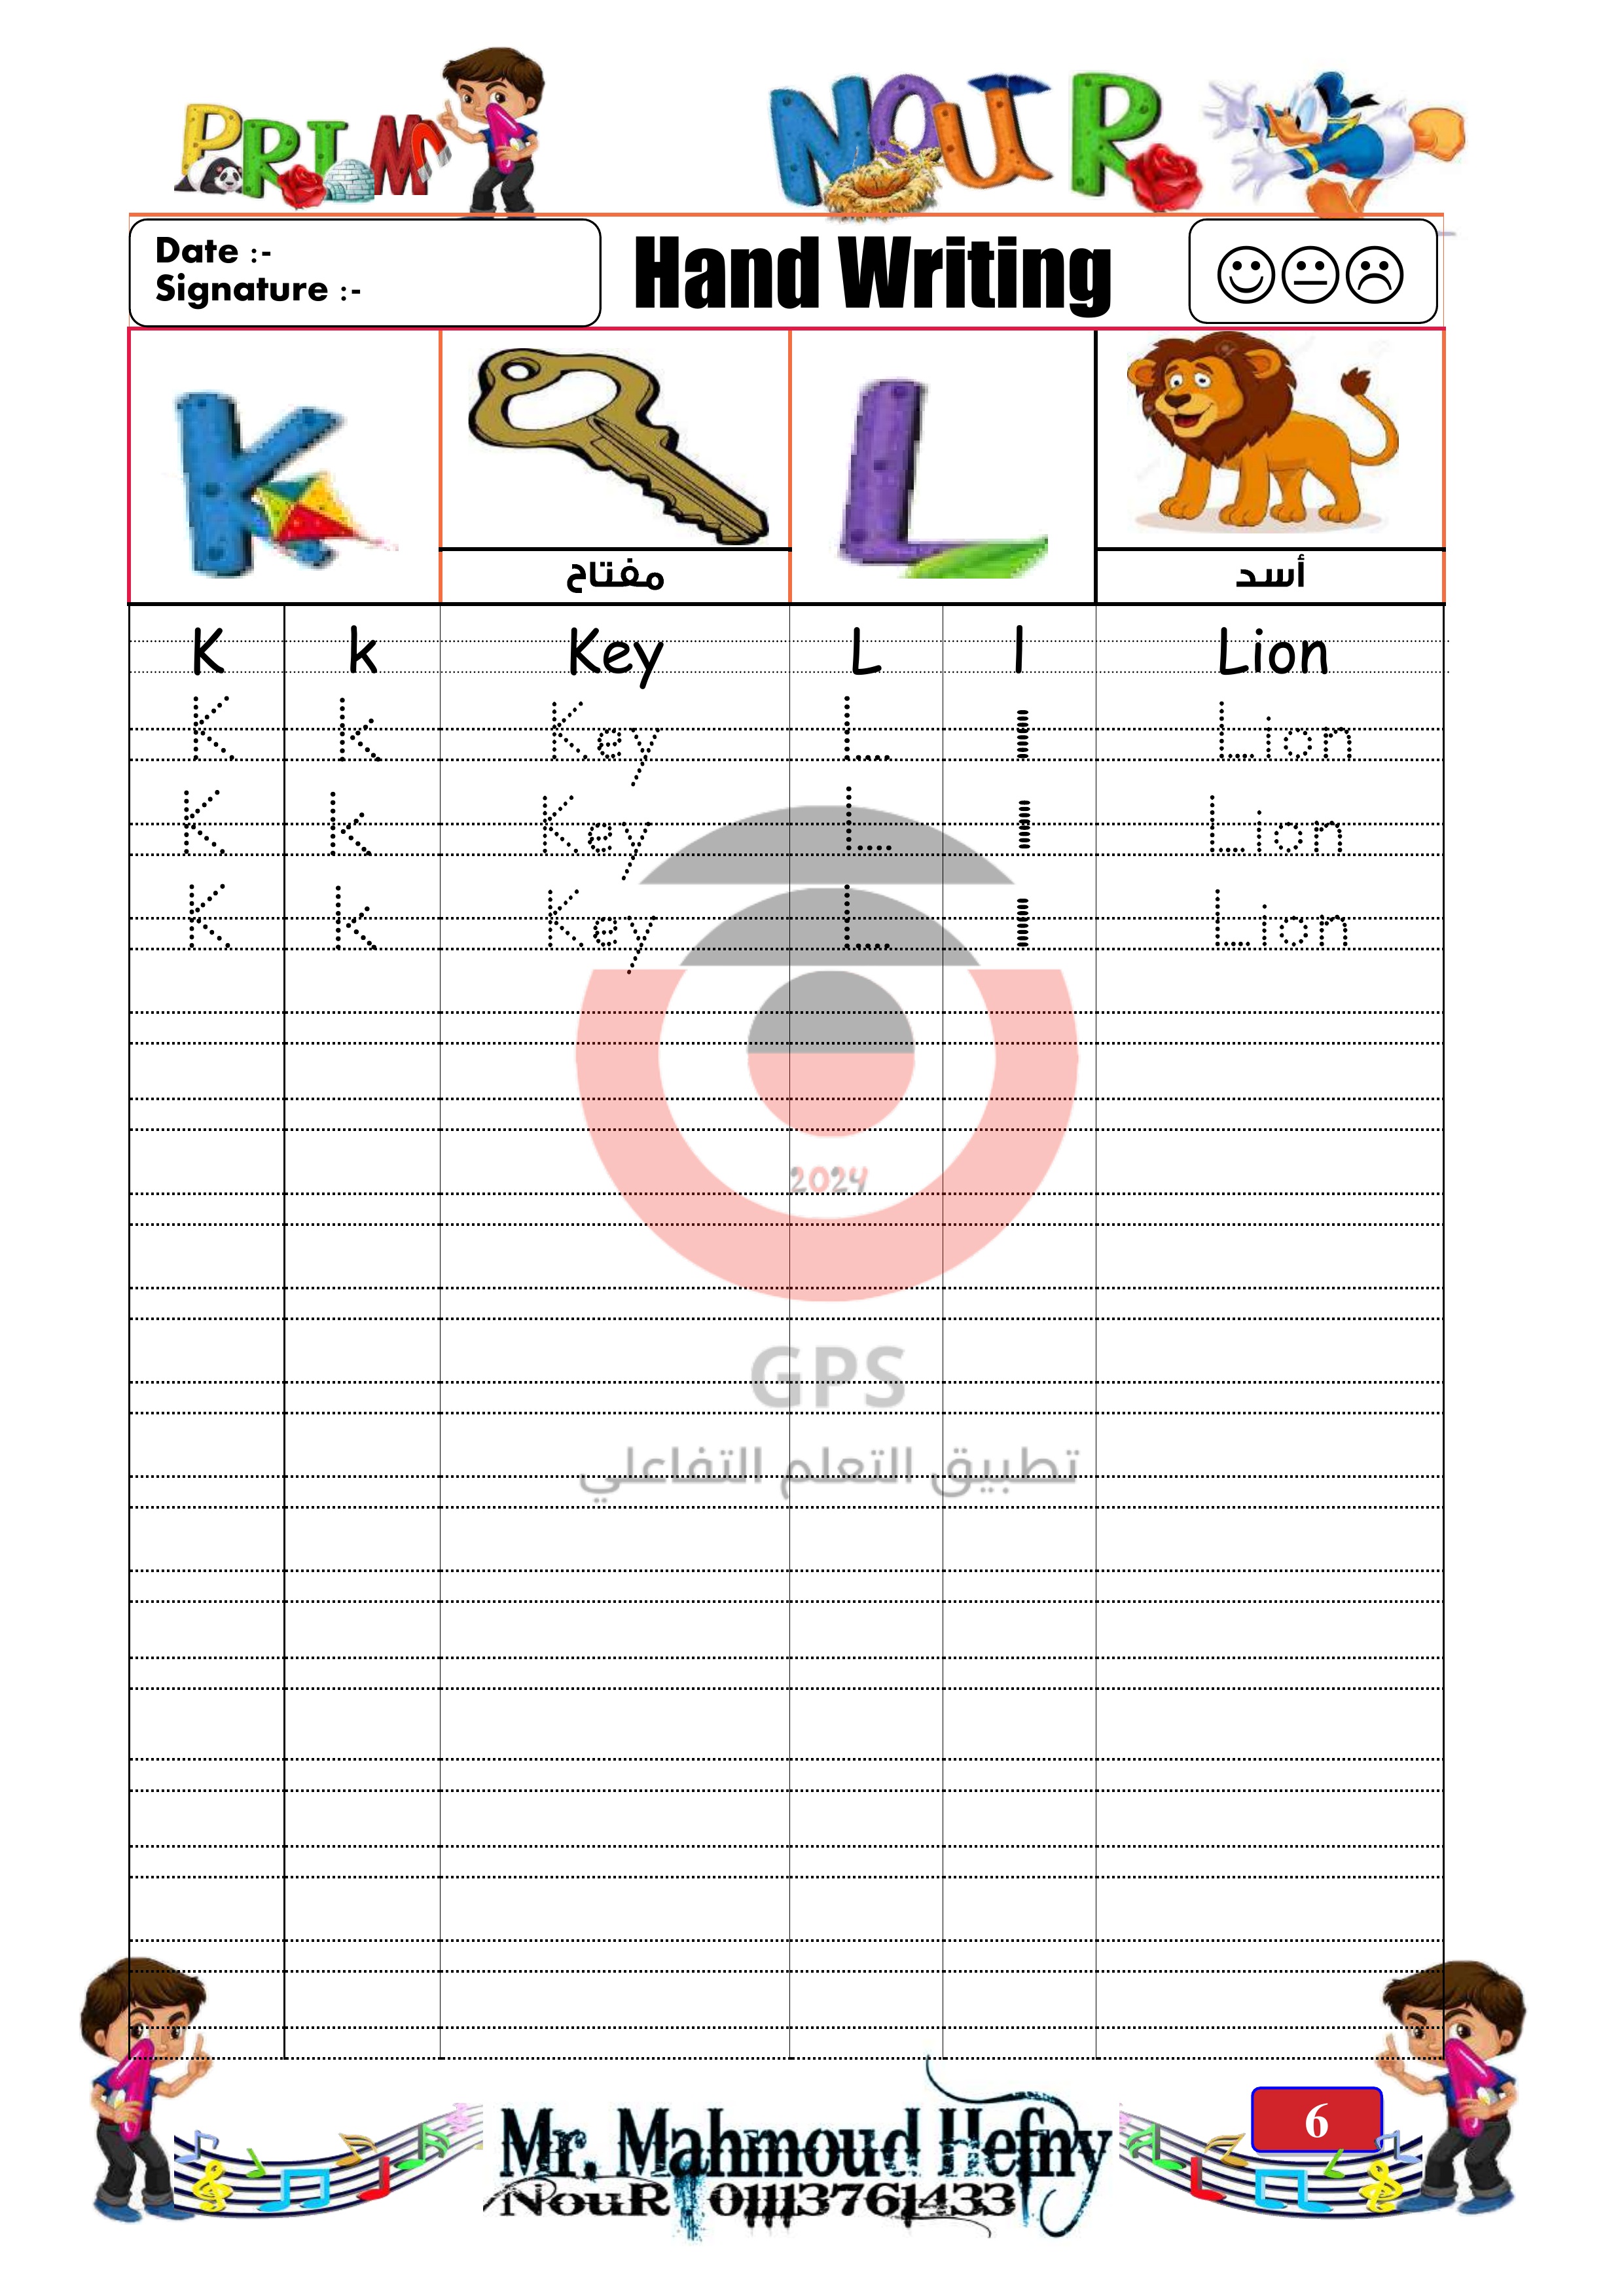 PRIM 1
NOUR
Date :-
Signature :-
Hand Writing
K
L
مفتاح
أسد
K k Key L l Lion
K k Key L l Lion
K k Key L l Lion
K k Key L l Lion
2024
GPS
تطبيق التعلم التفاعلي
1
1
6
Mr. Mahmoud Hefny
NouR 01113761433